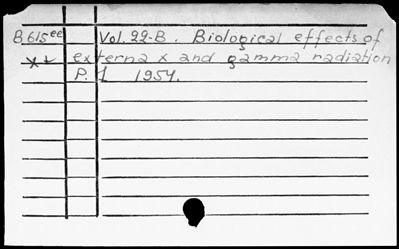 B615ee Vol. 22-B. Biological effects of
x+ externa x and gamma radiation
P. 1 1954.